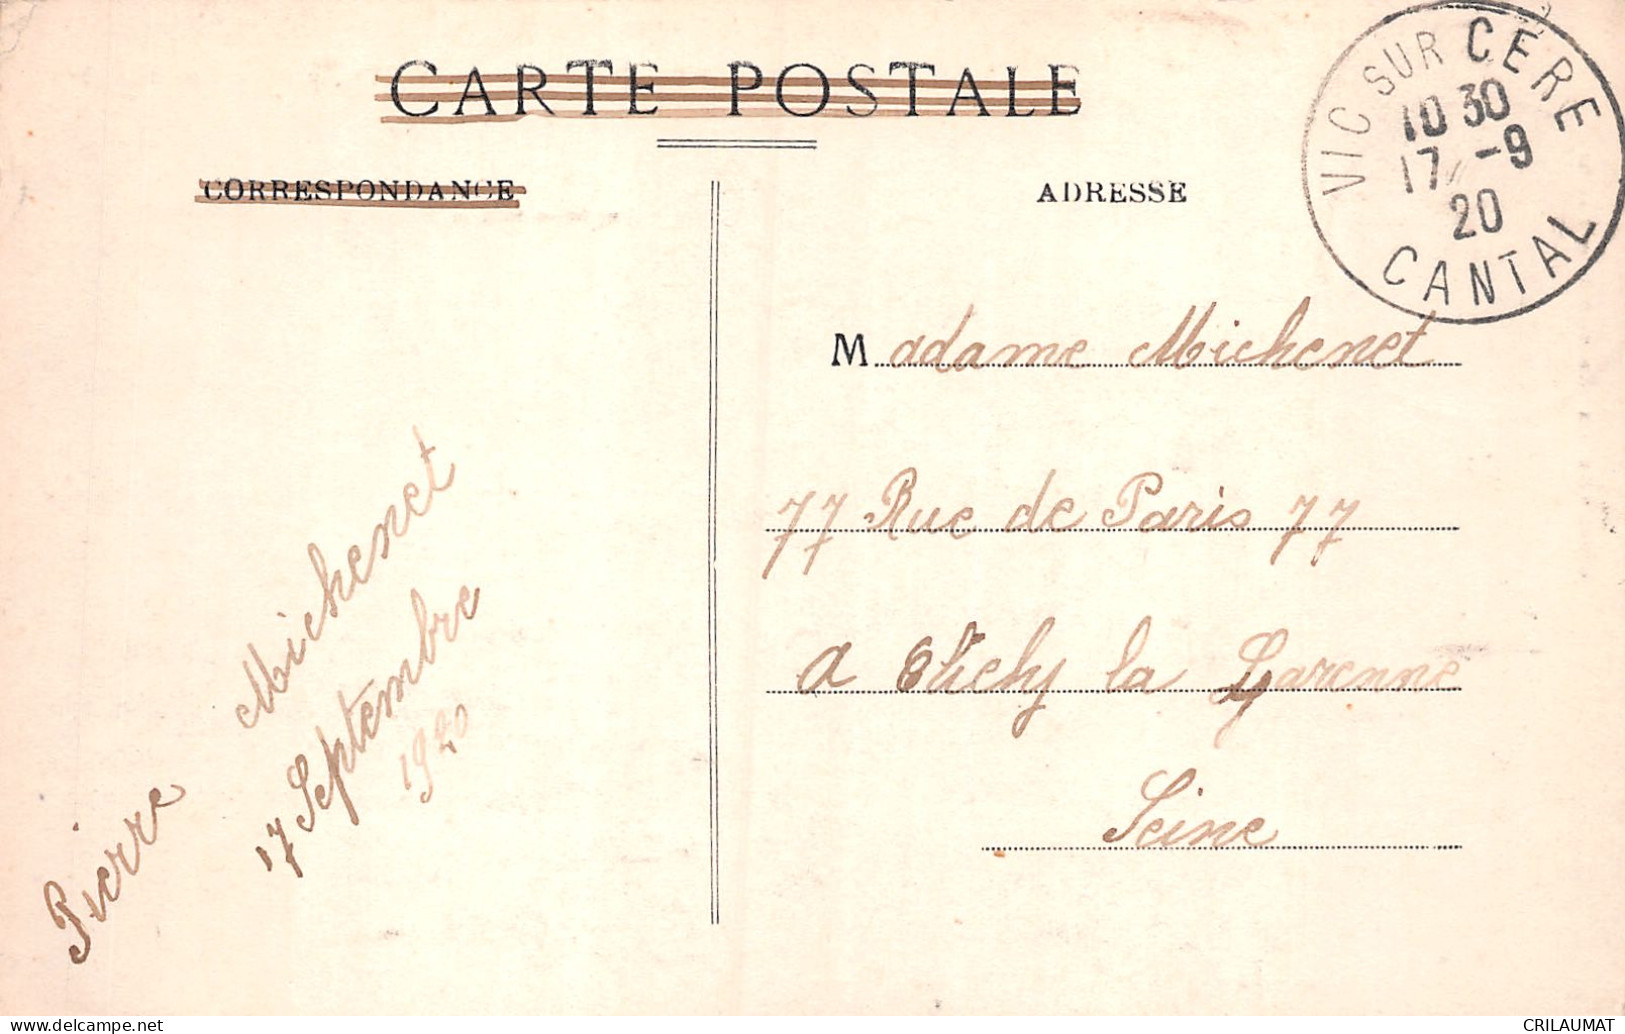 CARTE POSTALE
CORRESPONDANCE
ADRESSE
VIC SUR CERE
10 30
17 -9
20
CANTAL
Madame Michenet
77 Rue de Paris 77
a Clichy la Garenne
Seine
Pierre Michenet
17 Septembre
1920
CRILAUMAT